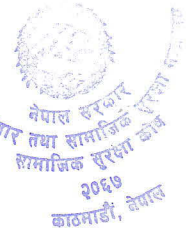 नेपाल सरकार
तथा सामाजिक सुरक्षा
सामाजिक सुरक्षा कोष
२०६७
काठमाडौं, नेपाल